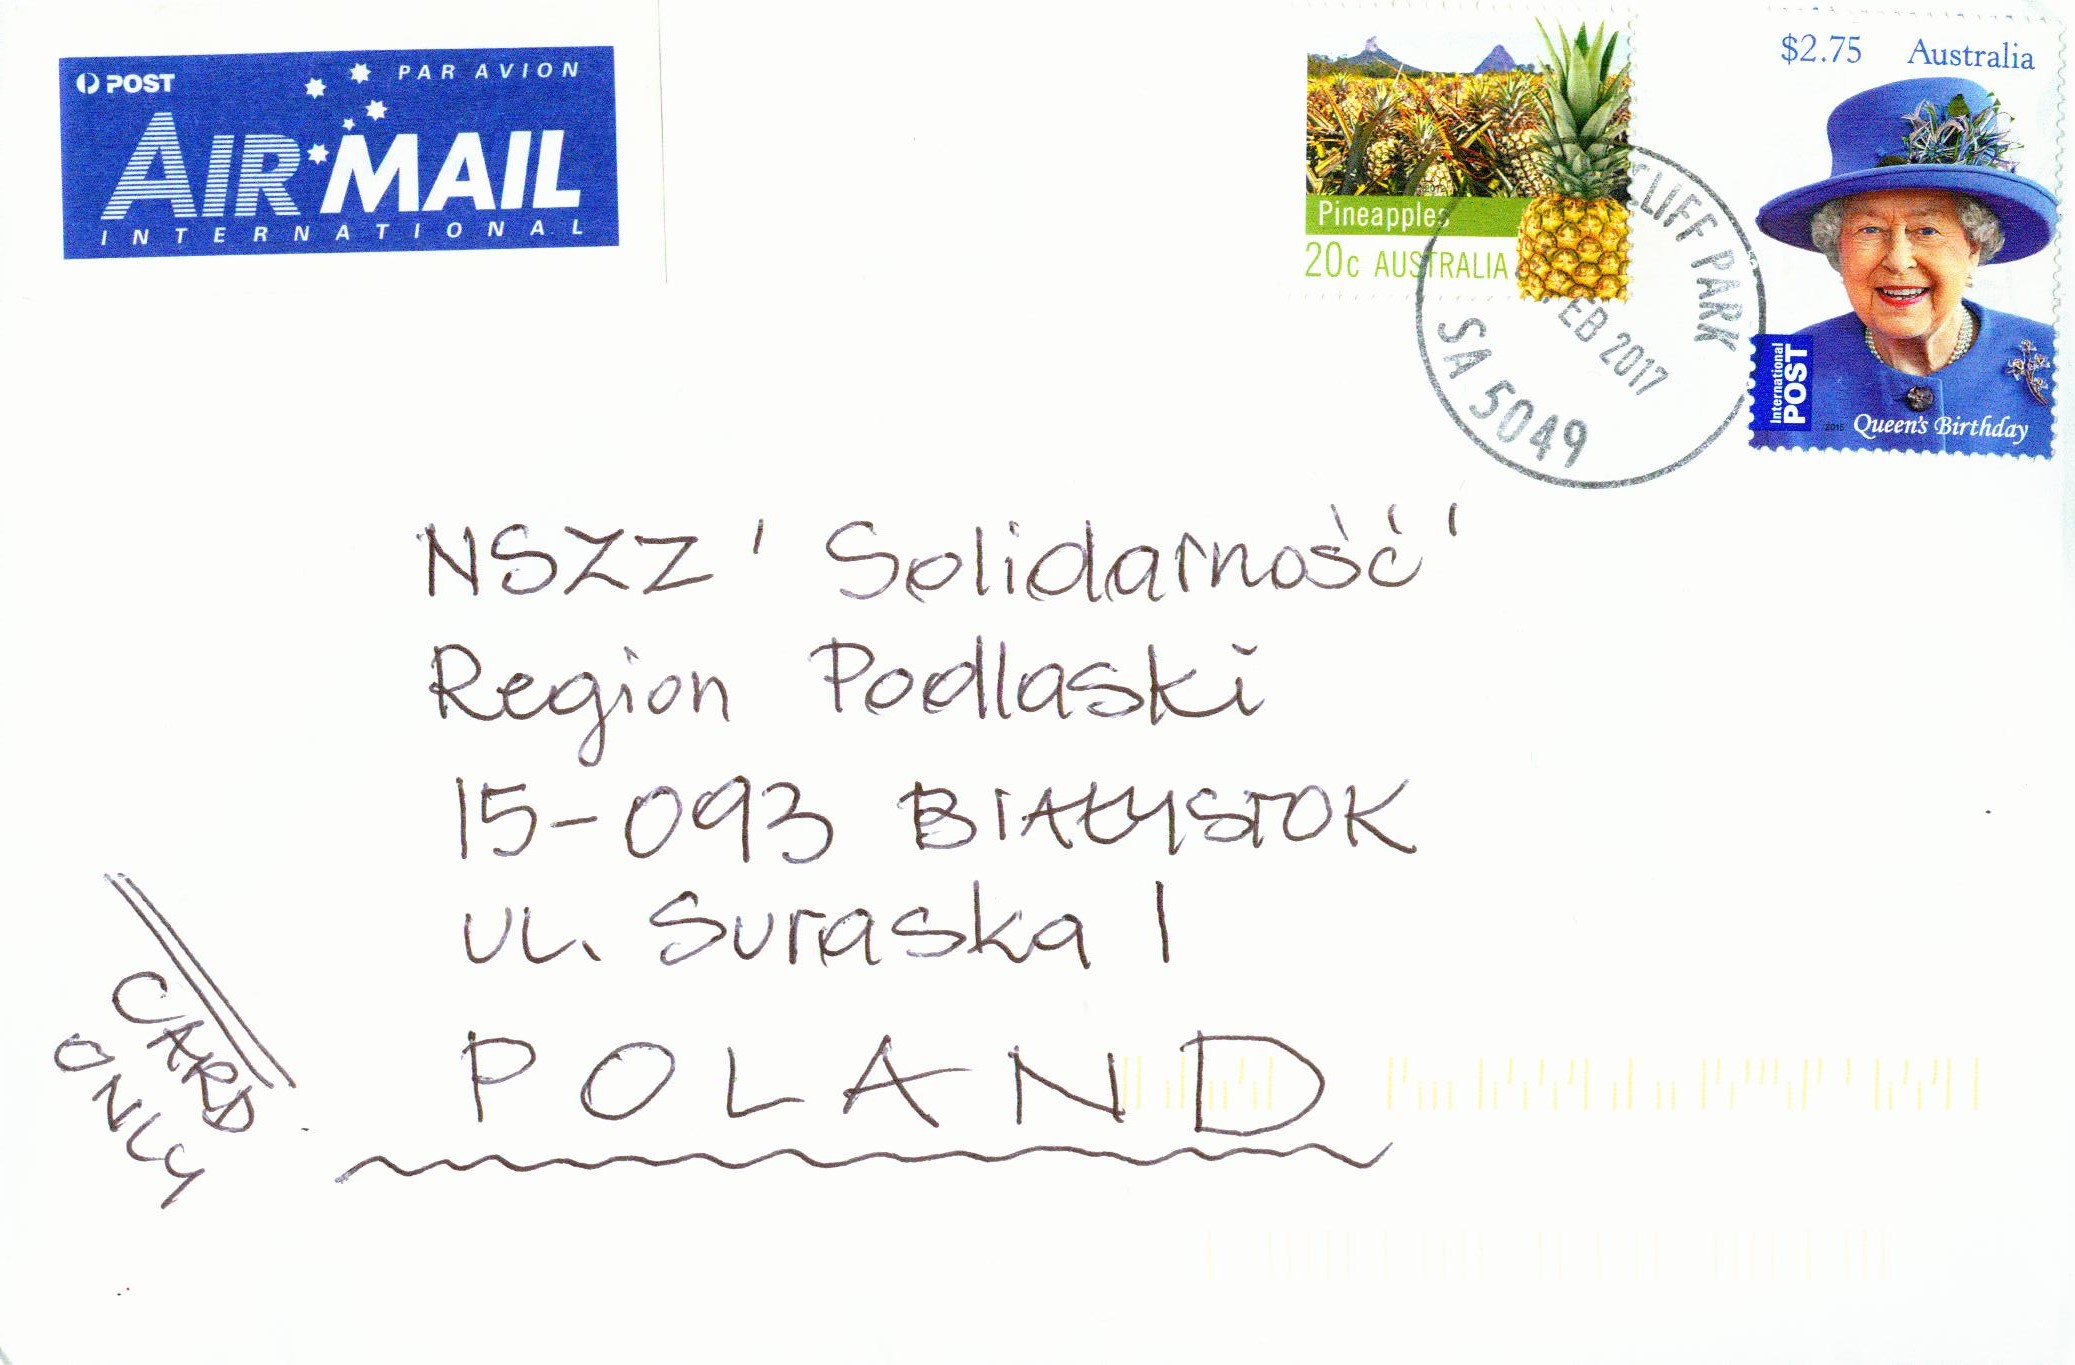 POST
PAR AVION
AIR MAIL
INTERNATIONAL
Pineapples
20c AUSTRALIA
$2.75 Australia
International
POST
2015
Queen's Birthday
CLIFF PARK
EB 2017
SA 5049
NSZZ 'Solidarność'
Region Podlaski
15-093 BIAŁYSTOK
UL. Suraska 1
POLAND
CARD
ONLY